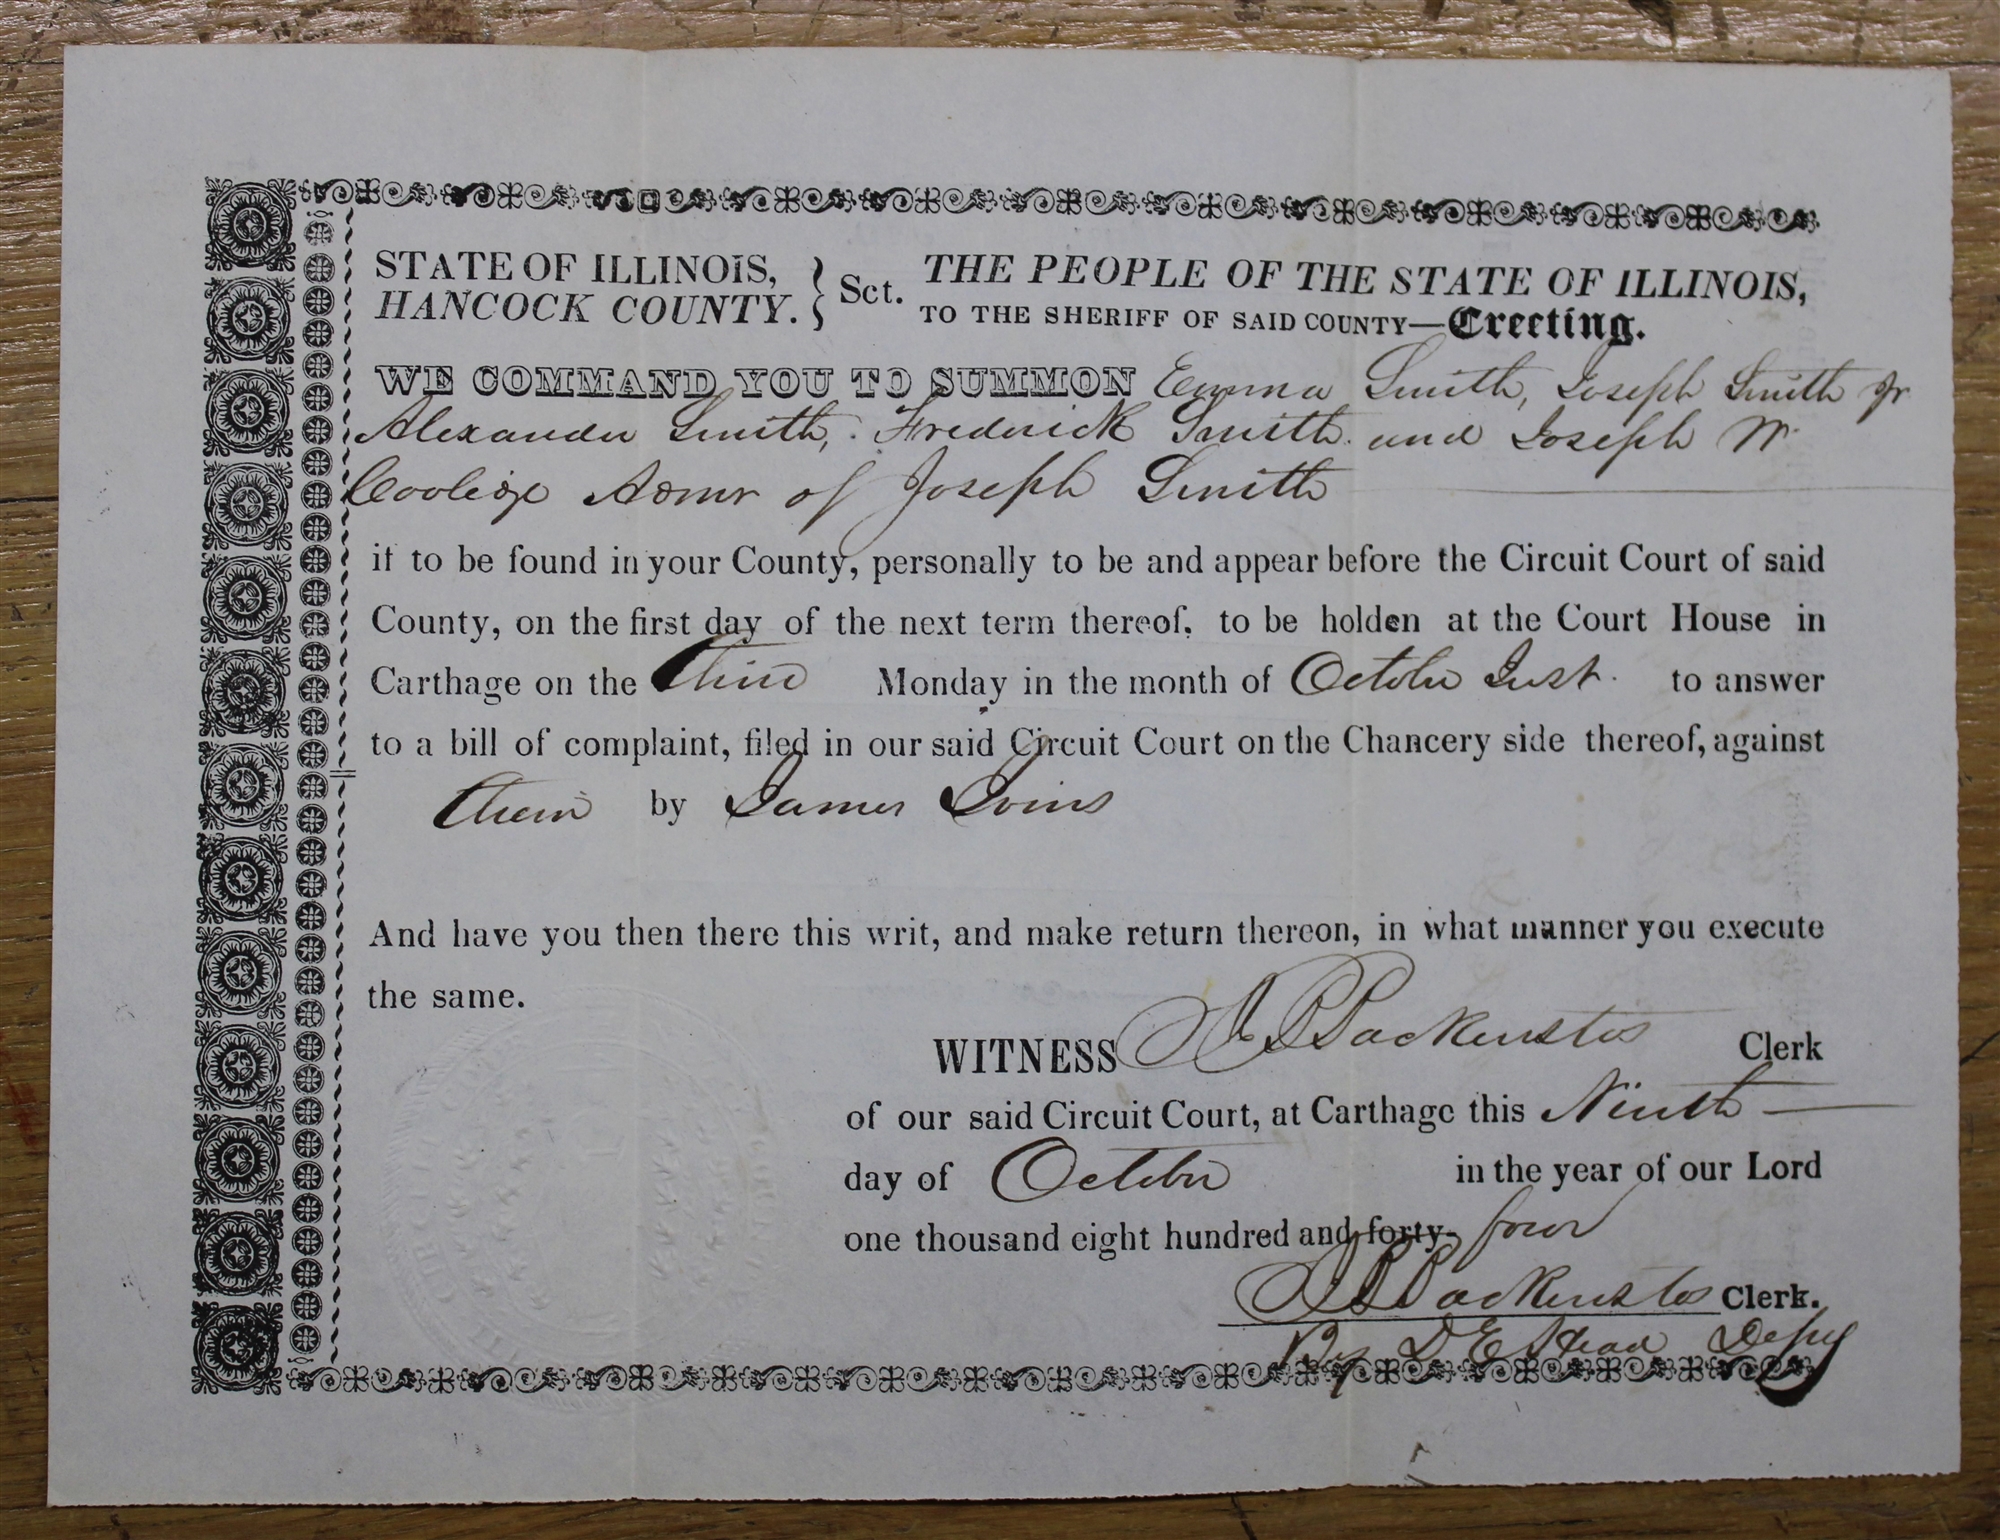 STATE OF ILLINOIS, } Sct. THE PEOPLE OF THE STATE OF ILLINOIS,
HANCOCK COUNTY. TO THE SHERIFF OF SAID COUNTY—Greeting.
WE COMMAND YOU TO SUMMON Emma Smith, Joseph Smith Jr
Alexander Smith, Frederick Smith and Joseph W.
Coolidge Admr of Joseph Smith
if to be found in your County, personally to be and appear before the Circuit Court of said
County, on the first day of the next term thereof, to be holden at the Court House in
Carthage on the Third Monday in the month of October Inst. to answer
to a bill of complaint, filed in our said Circuit Court on the Chancery side thereof, against
them by James Ivins
And have you then there this writ, and make return thereon, in what manner you execute
the same.
WITNESS J B Backenstos Clerk
of our said Circuit Court, at Carthage this Ninth
day of October in the year of our Lord
one thousand eight hundred and forty- four
J B Backenstos Clerk.
By D E Head Depy